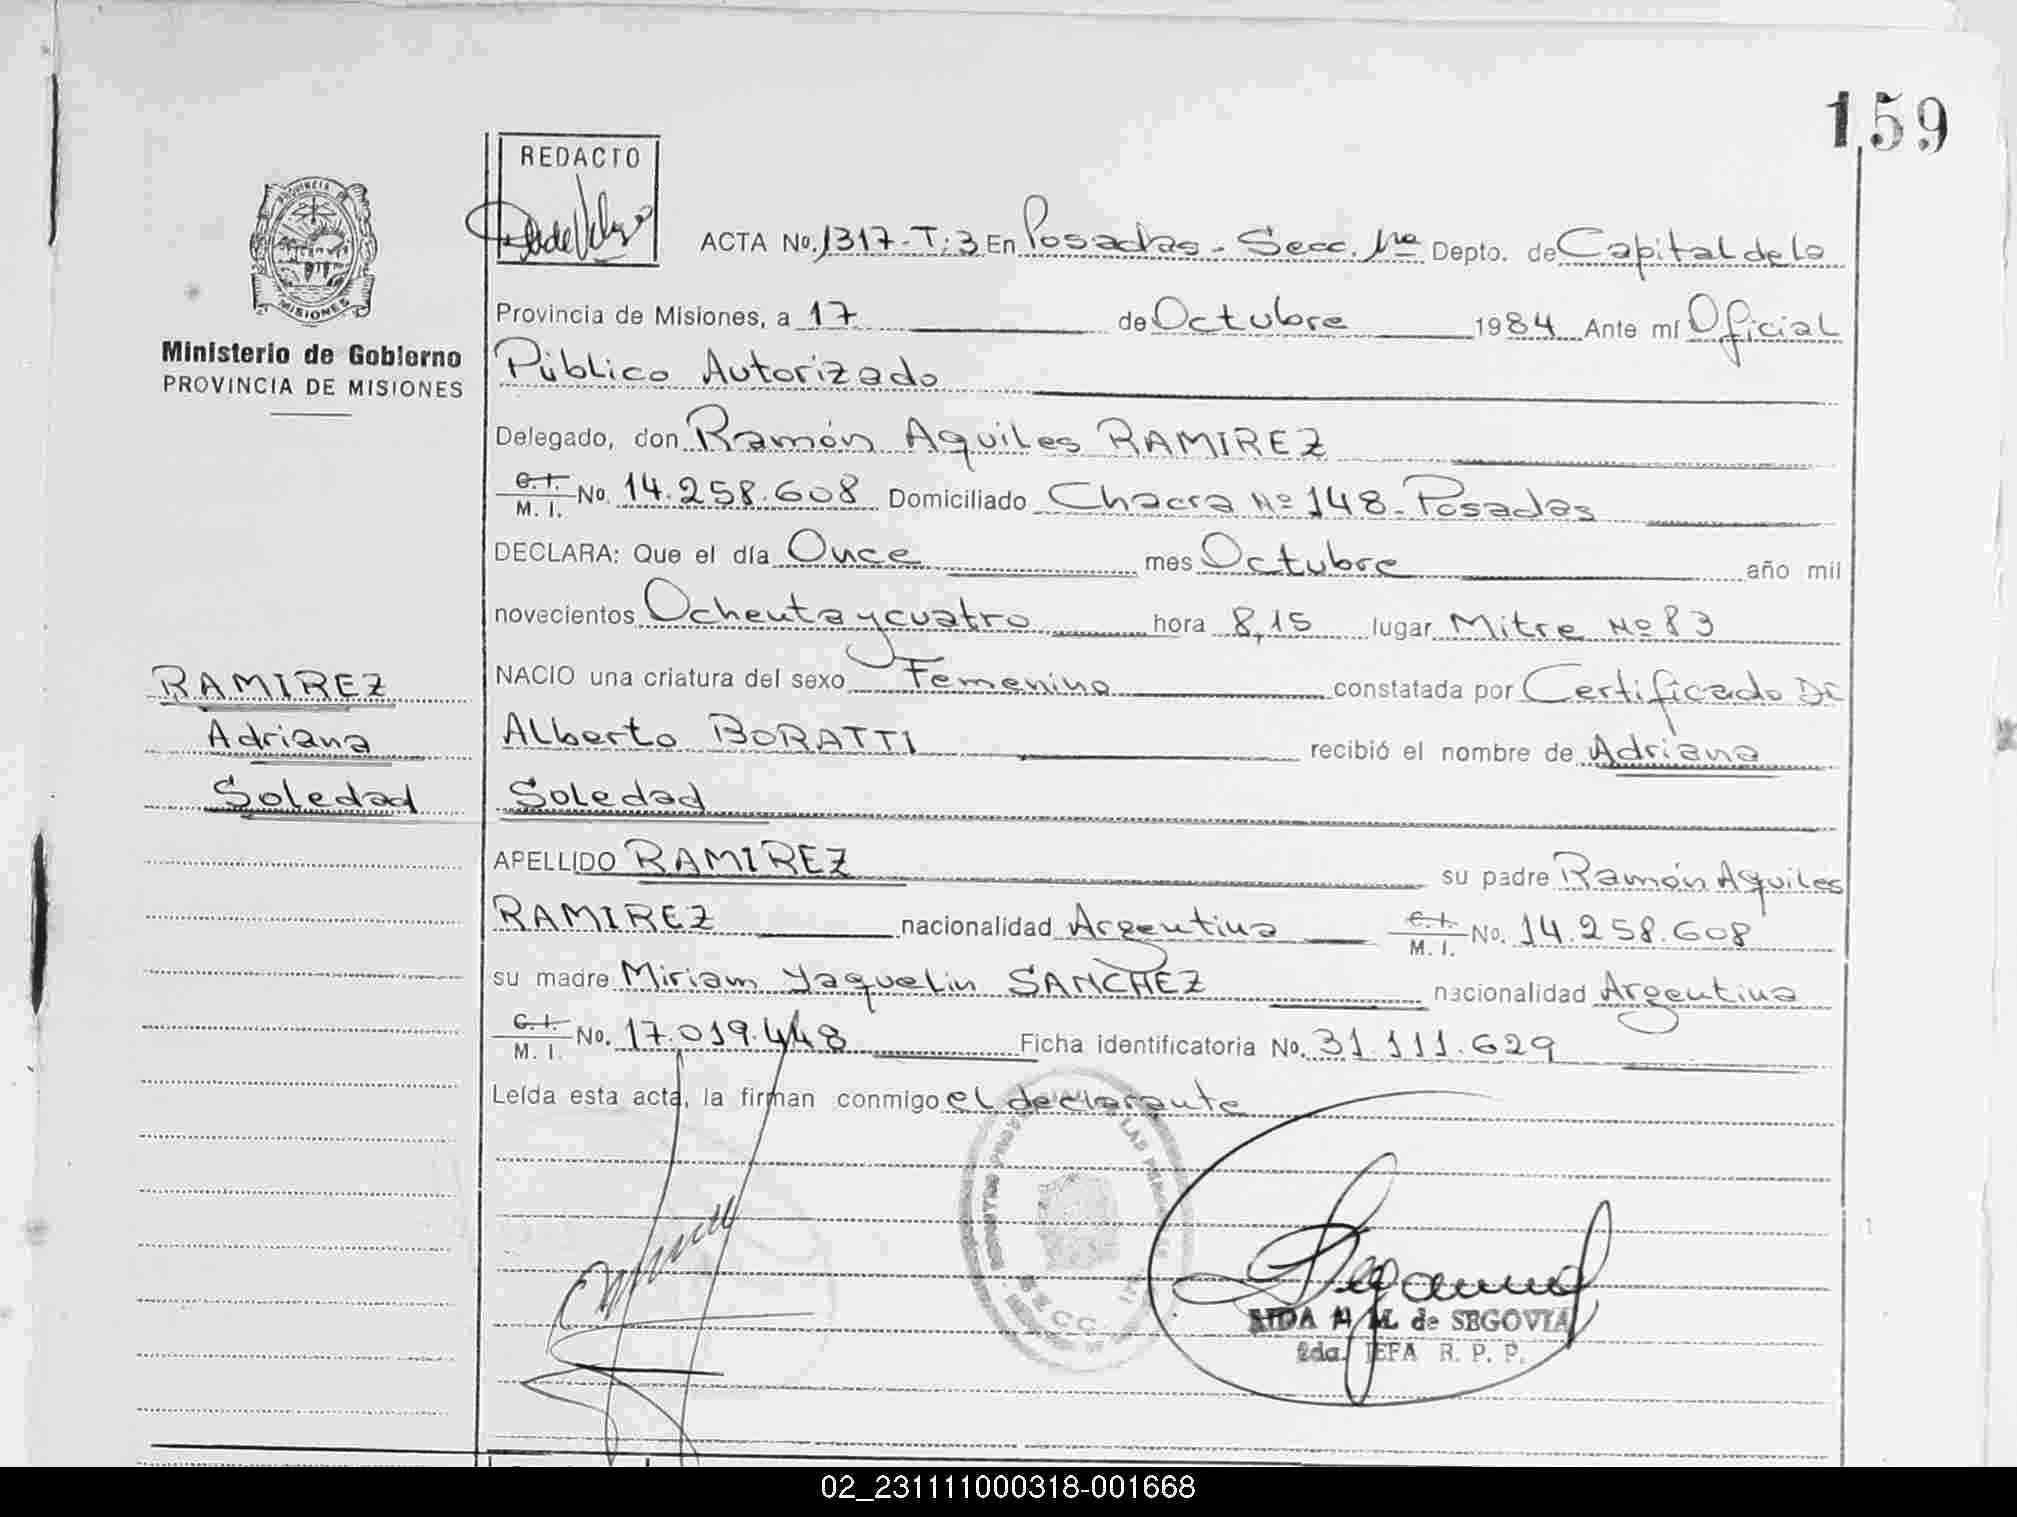 159
REDACTO
PROVINCIA DE
MISIONES
Ministerio de Gobierno
PROVINCIA DE MISIONES
ACTA No. 1317-T:3 En Posadas - Secc. 1ra Depto. de Capital de la
Provincia de Misiones, a 17 de Octubre 1984 Ante mí Oficial
Público Autorizado
Delegado, don Ramón Aquiles RAMIREZ
C.I. M. I. No. 14.258.608 Domiciliado Chacra Nº 148-Posadas
DECLARA: Que el día Once mes Octubre año mil
novecientos Ochenta y cuatro hora 8,15 lugar Mitre Nº 83
NACIO una criatura del sexo Femenino constatada por Certificado Dr
Alberto BORATTI recibió el nombre de Adriana
Soledad
RAMIREZ
Adriana
Soledad
APELLIDO RAMIREZ su padre Ramón Aquiles
RAMIREZ nacionalidad Argentina C.I. M. I. No. 14.258.608
su madre Miriam Yaquelin SANCHEZ nacionalidad Argentina
C.I. M. I. No. 17.019.448 Ficha identificatoria No. 31.111.629
Leída esta acta, la firman conmigo el declarante
SECC. 1ra
AIDA M. M. de SEGOVIA
2da. JEFA R. P. P.
02_231111000318-001668